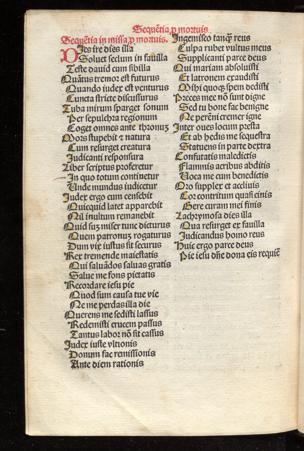 Sequẽtia ꝓ mortuis
Sequẽtia in missa ꝓ mortuis.
Dies ire dies illa
Soluet seclum in fauilla
Teste dauid cum sibilla
Quãtus tremor est futurus
Quando iudex est venturus
Cuncta stricte discussurus
Tuba mirum sparget sonum
Per sepulchra regionum
Coget omnes ante thronum
Mors stupebit et natura
Cum resurget creatura
Iudicanti responsura
Liber scriptus proferetur
In quo totum continetur
Unde mundus iudicetur
Iudex ergo cum censebit
Quicquid latet apparebit
Nil inultum remanebit
Quid sũ miser tunc dicturus
Quem patronum rogaturus
Dum vix iustus sit securus
Rex tremende maiestatis
Qui saluãdos saluas gratis
Salue me fons pietatis
Recordare iesu pie
Quod sum causa tue vie
Ne me perdas illa die
Querens me sedisti lassus
Redemisti crucem passus
Tantus labor nõ sit cassus
Iudex iuste vltionis
Donum fac remissionis
Ante diem rationis
Ingemisco tanqᷓ reus
Culpa rubet vultus meus
Supplicanti parce deus
Qui mariam absoluisti
Et latronem exaudisti
Mihi quoqꝫ spem dedisti
Preces mee nõ sunt digne
Sed tu bone fac benigne
Ne perẽni cremer igne
Inter oues locum presta
Et ab hedis me sequestra
Statuens in parte dextra
Confutatis maledictis
Flammis acribus addictis
Uoca me cum benedictis
Oro supplex et accliuis
Cor contritum quasi cinis
Gere curam mei finis
Lachrymosa dies illa
Qua resurget ex fauilla
Iudicandus homo reus
Huic ergo parce deus
Pie iesu dñe dona eis requiẽ